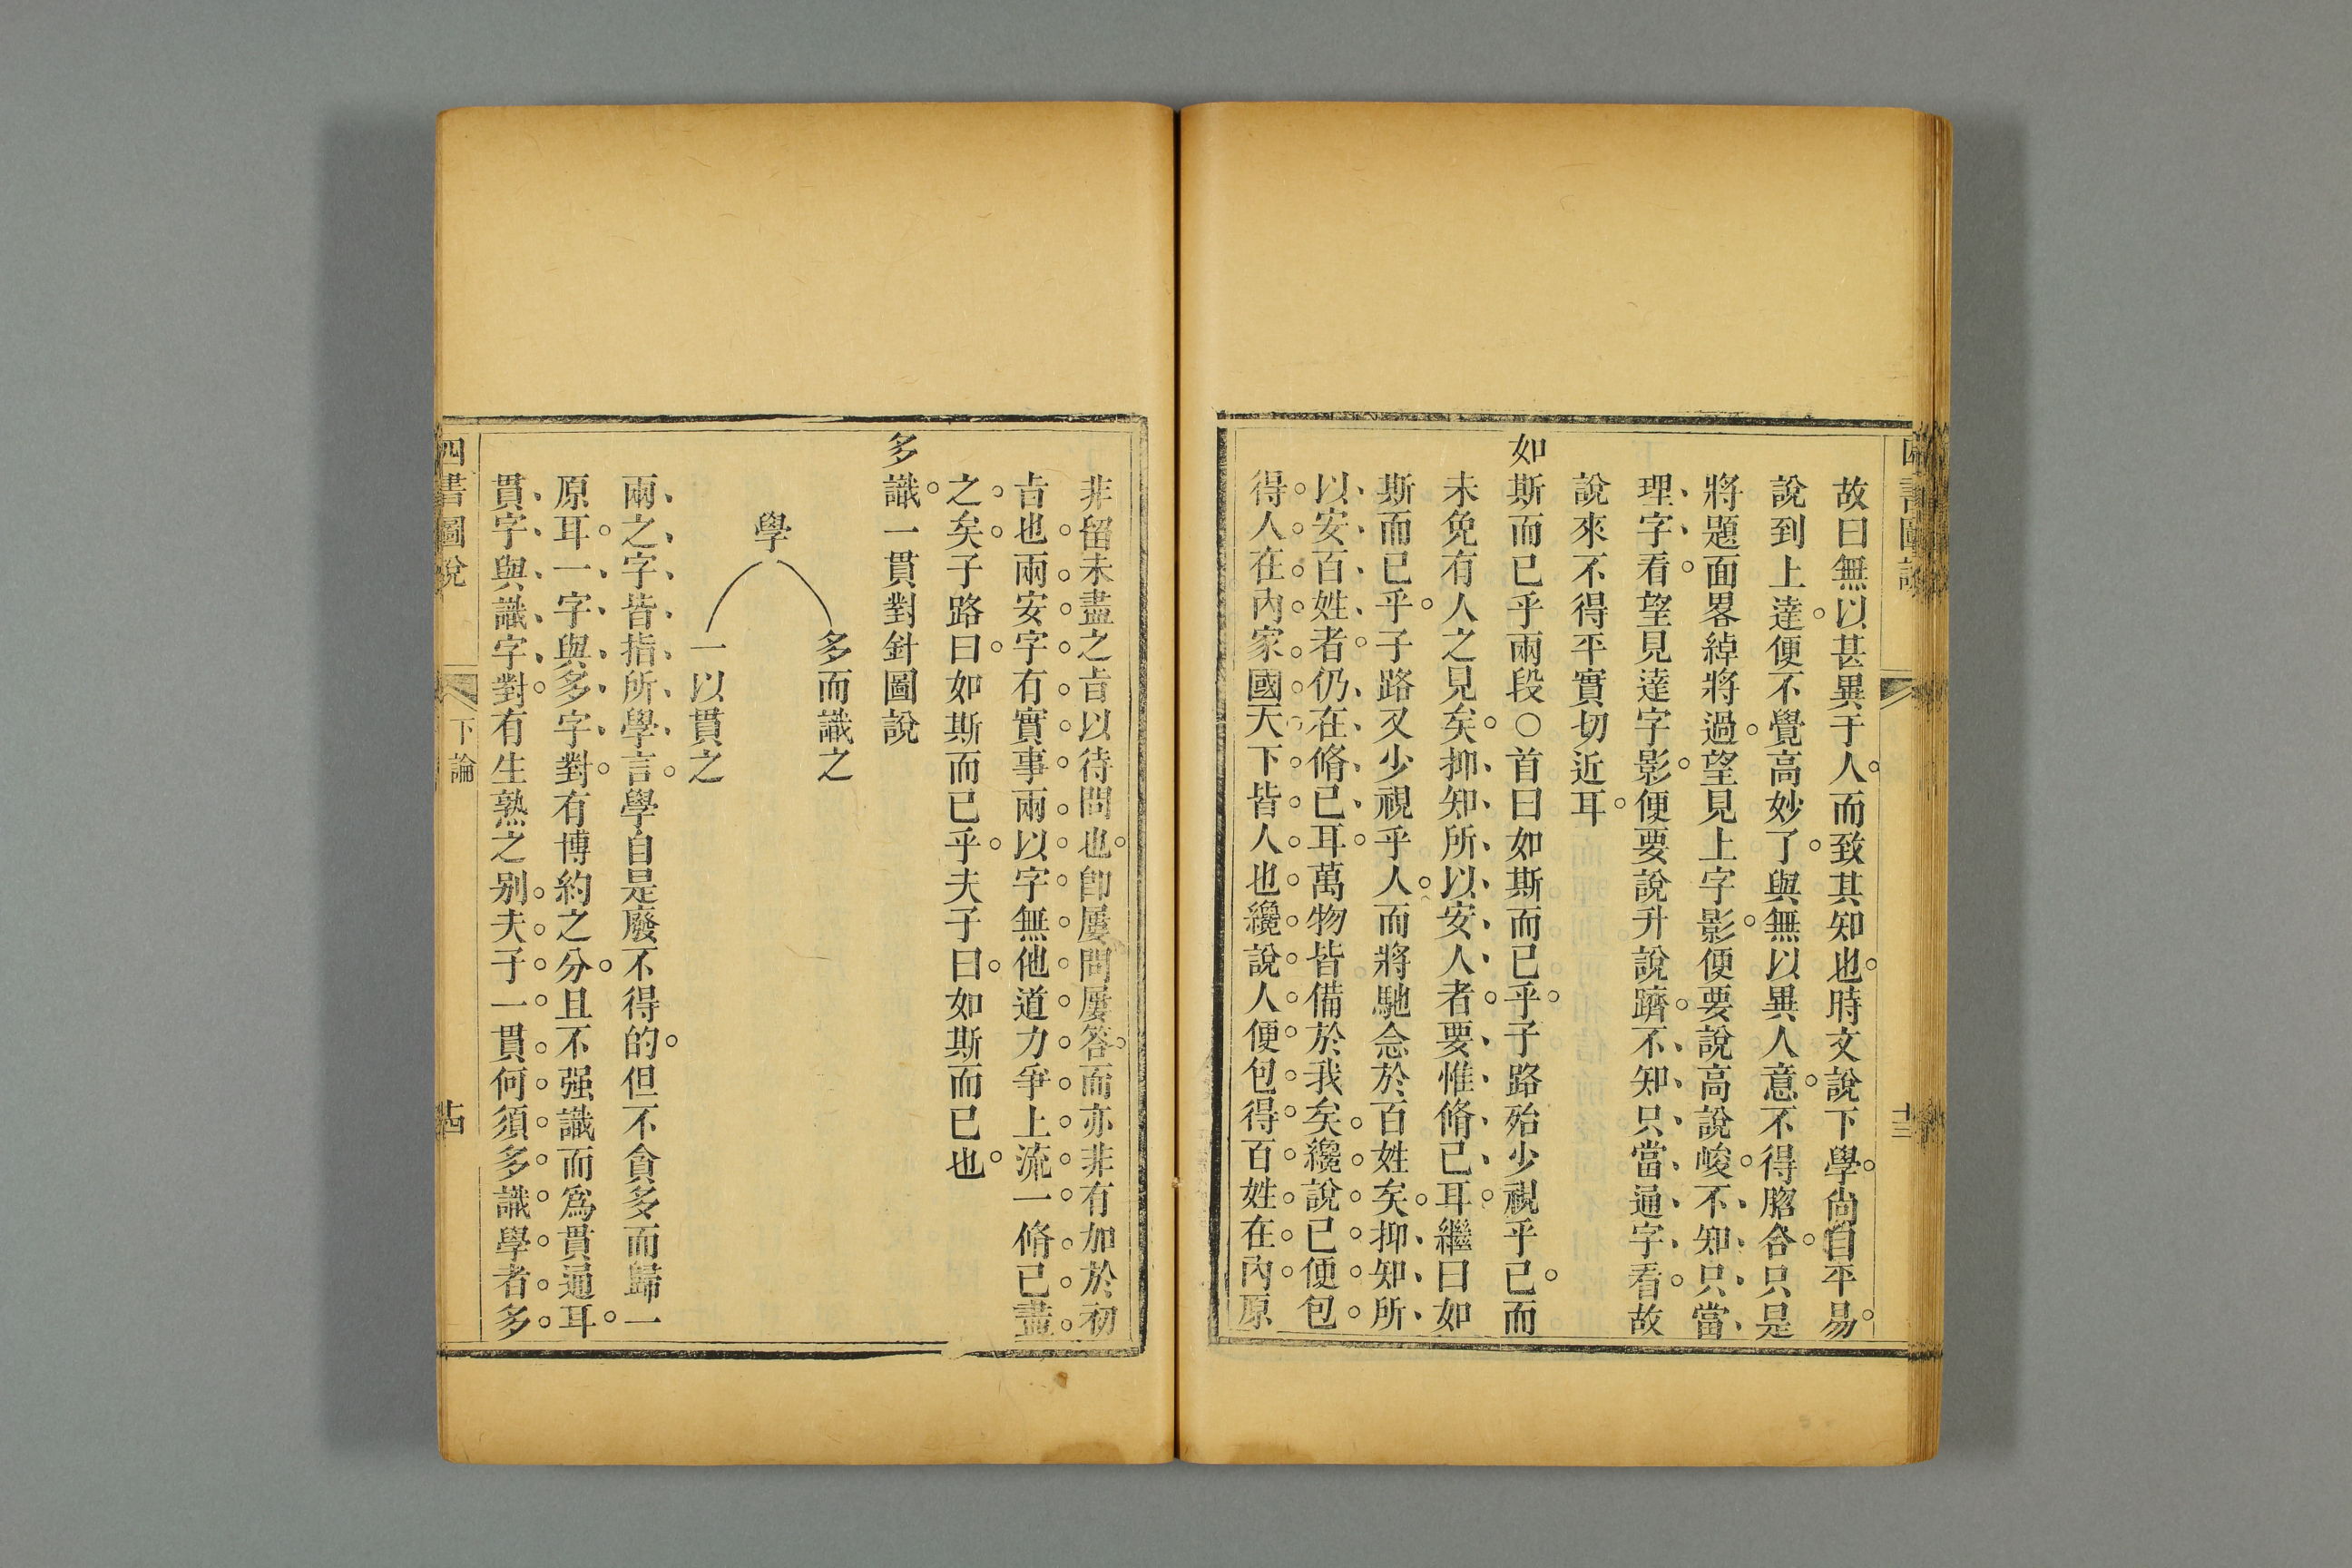 故曰無以甚異于人而致其知也時文說下學尙自平易
說到上達便不覺高妙了與無以異人意不得脗合只是
將題面畧綽將過望見上字影便要說高說峻不知只當
理字看望見達字影便要說升說躋不知只當通字看故
說來不得平實切近耳
如斯而已乎兩段○首曰如斯而已乎子路殆少視乎己而
未免有人之見矣抑知所以安人者要惟脩己耳繼曰如
斯而已乎子路又少視乎人而將馳念於百姓矣抑知所
以安百姓者仍在脩已耳萬物皆備於我矣纔說已便包
得人在內家國天下皆人也纔說人便包得百姓在內原
非留未盡之旨以待問也卽屢問屢答而亦非有加於初
旨也兩安字有實事兩以字無他道力爭上流一脩已盡
之矣子路曰如斯而已乎夫子曰如斯而已也
多識一貫對針圖說
學
多而識之
一以貫之
兩之字皆指所學言學自是廢不得的但不貪多而歸一
原耳一字與多字對有博約之分且不强識而爲貫通耳
貫字與識字對有生熟之别夫子一貫何須多識學者多
四書圖說
下論
十四